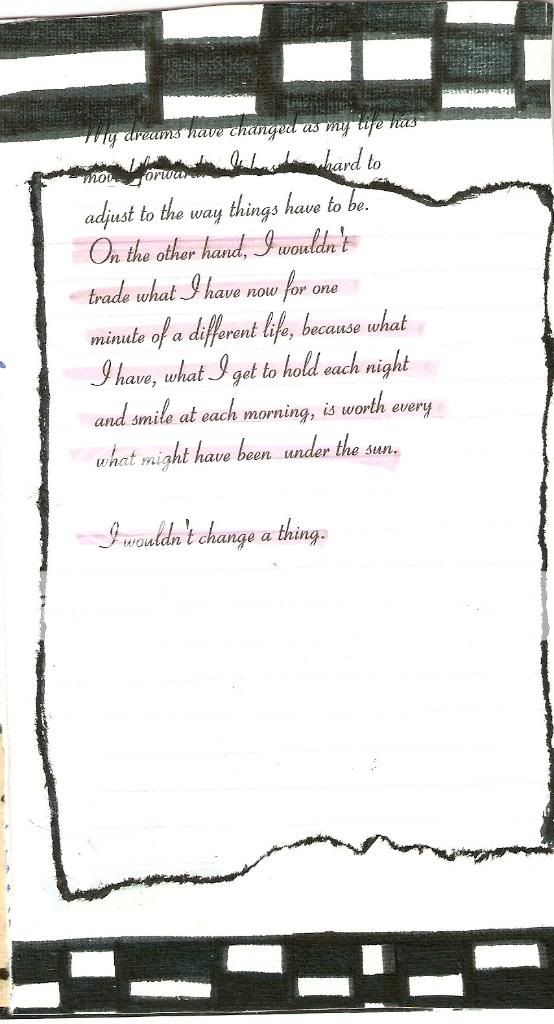 My dreams have changed as my life has
moved forward. It hard to
adjust to the way things have to be.
On the other hand, I wouldn't
trade what I have now for one
minute of a different life, because what
I have, what I get to hold each night
and smile at each morning, is worth every
what might have been under the sun.
I wouldn't change a thing.